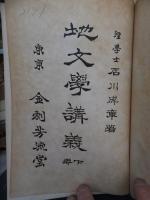 理學士石川成章著
地文學講義
下卷
東京 金刺芳流堂